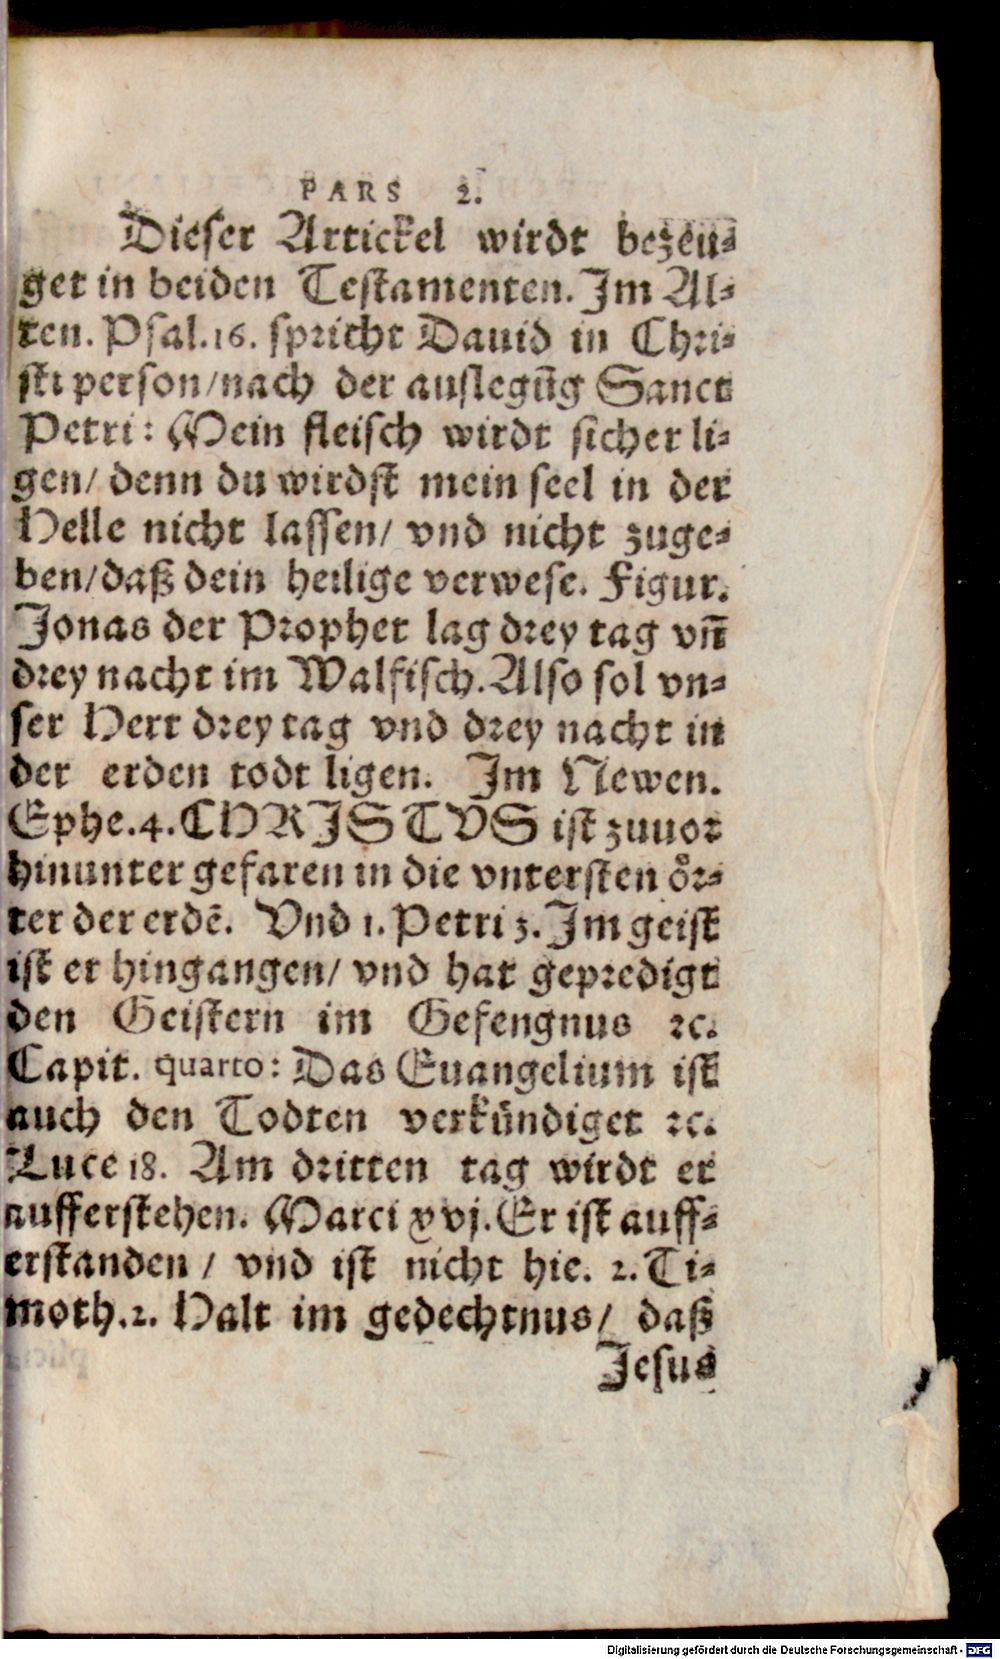 PARS 2.
Dieser Artickel wirdt bezeu-
get in beiden Testamenten. Im Al-
ten. Psal. 16. spricht Dauid in Chri-
sti person/nach der auslegũg Sanct
Petri: Mein fleisch wirdt sicher li-
gen/ denn du wirdst mein seel in der
Helle nicht lassen/ vnd nicht zuge-
ben/daß dein heilige verwese. Figur.
Jonas der Prophet lag drey tag vñ
drey nacht im Walfisch. Also sol vn-
ser Herr drey tag vnd drey nacht in
der erden todt ligen. Im Newen.
Ephe. 4. CHRISTVS ist zuuor
hinunter gefaren in die vntersten oͤr-
ter der erdẽ. Vnd 1. Petri 3. Im geist
ist er hingangen/ vnd hat gepredigt
den Geistern im Gefengnus ꝛc.
Capit. quarto: Das Euangelium ist
auch den Todten verkündiget ꝛc.
Luce 18. Am dritten tag wirdt er
aufferstehen. Marci xvj. Er ist auff-
erstanden / vnd ist nicht hie. 2. Ti-
moth. 2. Halt im gedechtnus/ daß
Jesus
Digitalisierung gefördert durch die Deutsche Forschungsgemeinschaft - DFG